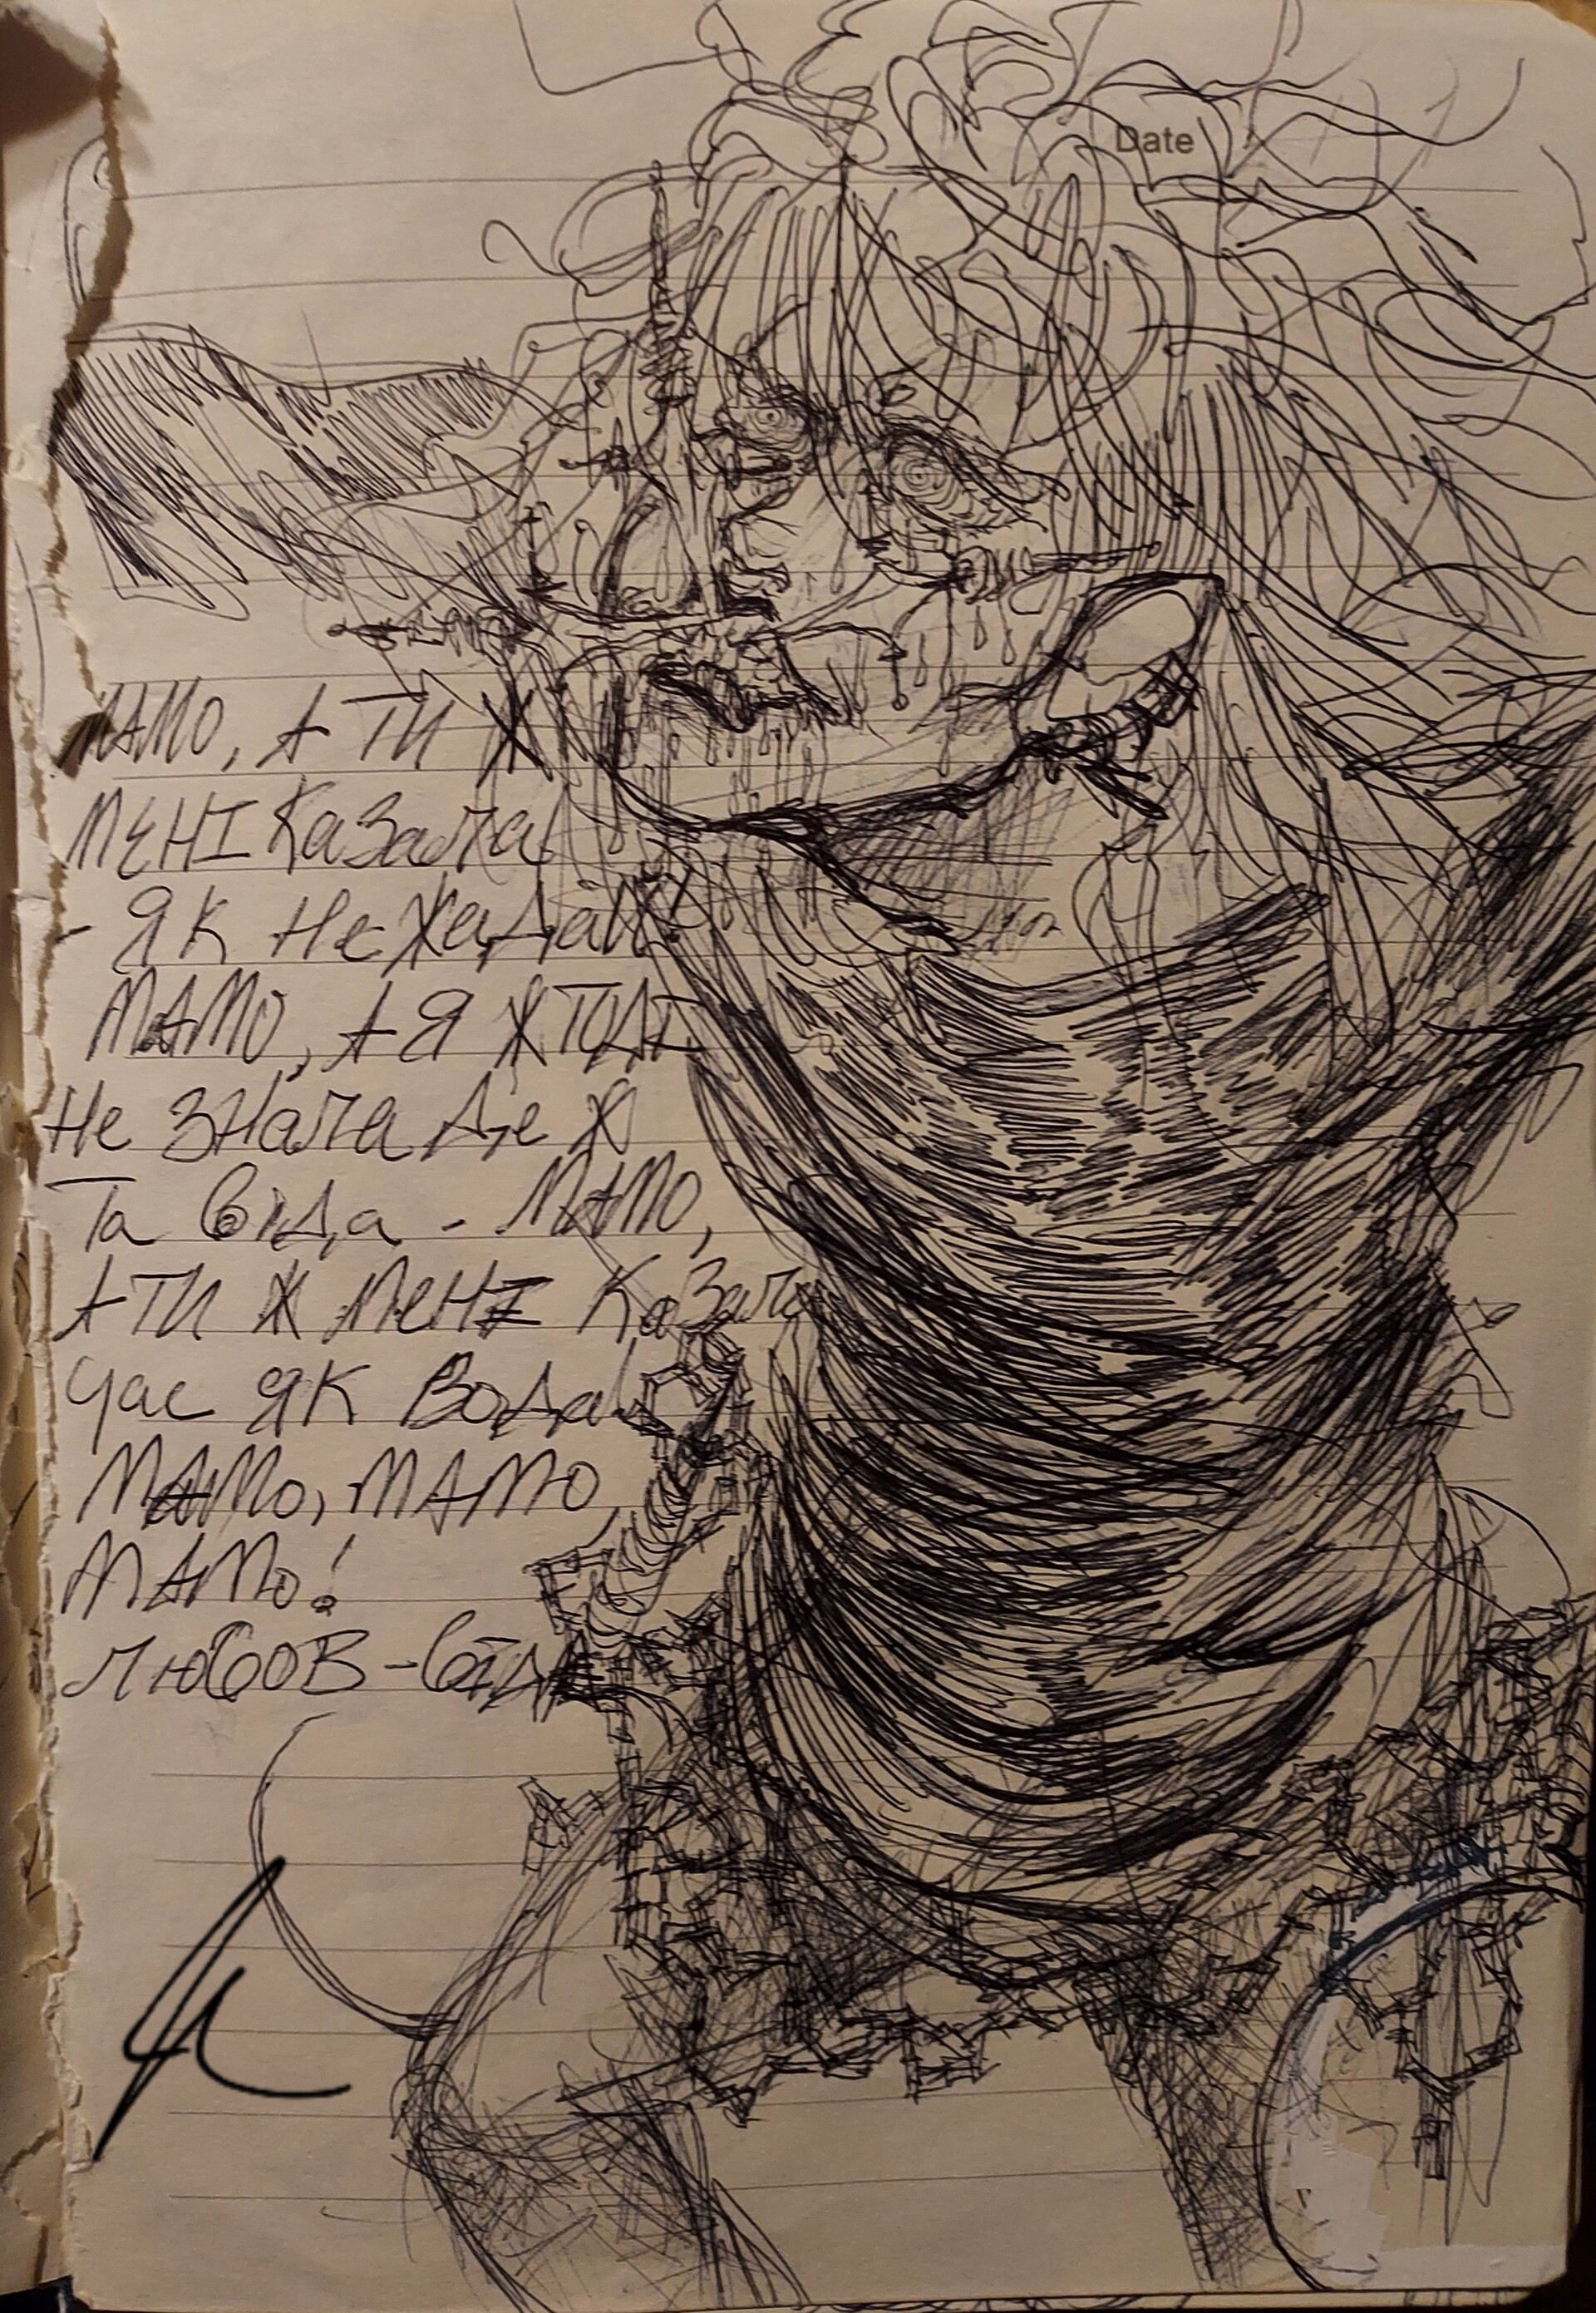 Date
МАМО, А ТИ Ж
МЕНІ Казала
- ЯК Не Хадай
МАМО, А Я Ж ТОДІ
Не Знала Де Ж
Та біда - МАМО,
А ТИ Ж МеНІ Казала
Час ЯК Вода
МАМо, МАМО,
МАМо!
Любов - біда